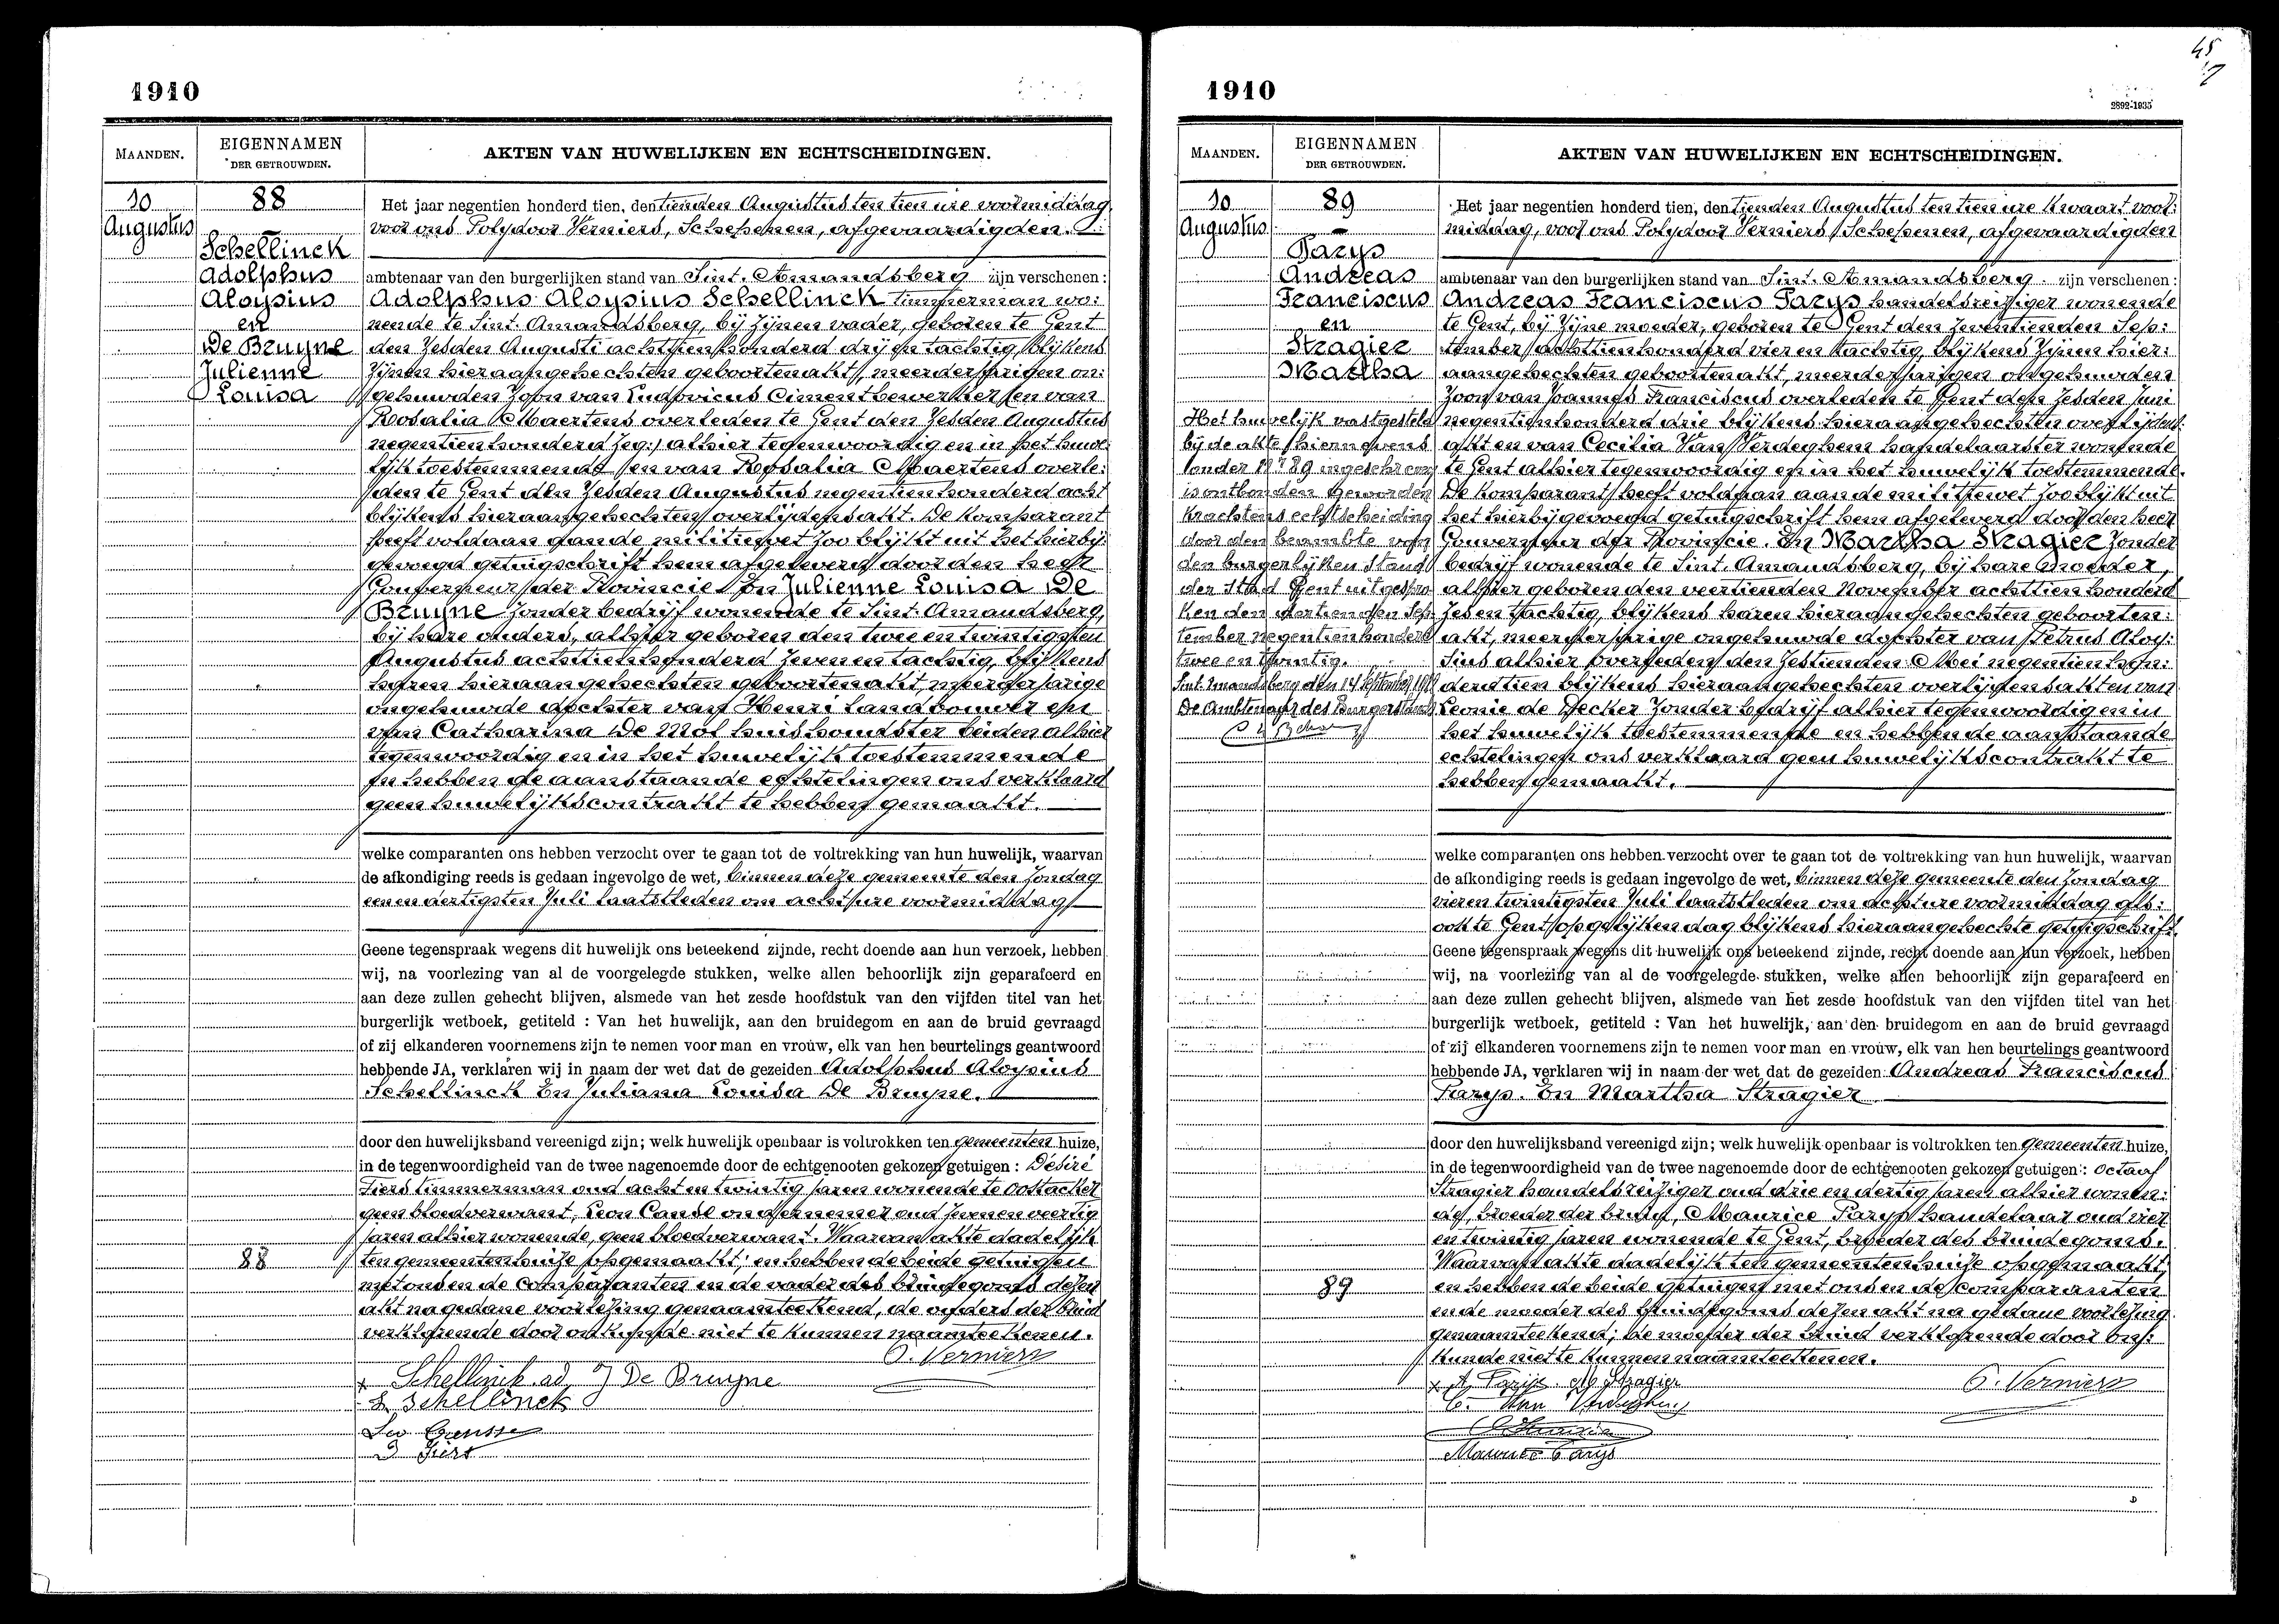 1910
MAANDEN.
EIGENNAMEN
DER GETROUWDEN.
AKTEN VAN HUWELIJKEN EN ECHTSCHEIDINGEN.
10
Augustus
88
Schellinck
Adolphus
Aloysius
en
De Bruyne
Julienne
Louisa
88
Het jaar negentien honderd tien, den tienden Augustus ten tien ure voormiddag,
voor ons Polydoor Verniers, Schepenen, afgevaardigden
ambtenaar van den burgerlijken stand van Sint. Amandsberg zijn verschenen :
Adolphus Aloysius Schellinck timmerman wo:
nende te Sint. Amandsberg, bij zijnen vader, geboren te Gent
den zesden Augusti achttien honderd drij en tachtig, blijkens
zijnen hieraangehechten geboortenakt, meerderjarigen on:
gehuwden zoon van Ludovicus Cimentbewerker (en van
Rosalia Maertens overleden te Gent den zesden Augustus
negentienhonderd zeg:) alhier tegenwoordig en in het huwe:
lijk toestemmende en van Rosalia Maertens overle:
den te Gent den zesden Augustus negentienhonderd acht
blijkens hieraangehechten overlijdensakt. De komparant
heeft voldaan aan de militiewet zoo blijkt uit het hierbij
gevoegd getuigschrift hem afgeleverd door den heer
Gouverneur der Provincie. En Julienne Louisa De
Bruyne zonder bedrijf wonende te Sint. Amandsberg,
bij hare ouders, alhier geboren den twee en twintigsten
Augustus achttienhonderd zeven en tachtig, blijkens
haren hieraangehechten geboortenakt, meerderjarige
ongehuwde dochter van Henri landbouwer en
van Catharina De Mol huishoudster beiden alhier
tegenwoordig en in het huwelijk toestemmende
En hebben de aanstaande echtelingen ons verklaard
geen huwelijkscontrakt te hebben gemaakt.
welke comparanten ons hebben verzocht over te gaan tot de voltrekking van hun huwelijk, waarvan
de afkondiging reeds is gedaan ingevolge de wet, binnen deze gemeente den Zondag
een en dertigsten Juli laatstleden om acht ure voormiddag
Geene tegenspraak wegens dit huwelijk ons beteekend zijnde, recht doende aan hun verzoek, hebben
wij, na voorlezing van al de voorgelegde stukken, welke allen behoorlijk zijn geparafeerd en
aan deze zullen gehecht blijven, alsmede van het zesde hoofdstuk van den vijfden titel van het
burgerlijk wetboek, getiteld : Van het huwelijk, aan den bruidegom en aan de bruid gevraagd
of zij elkanderen voornemens zijn te nemen voor man en vrouw, elk van hen beurtelings geantwoord
hebbende JA, verklaren wij in naam der wet dat de gezeiden Adolphus Aloysius
Schellinck En Juliana Louisa De Bruyne.
door den huwelijksband vereenigd zijn; welk huwelijk openbaar is voltrokken ten gemeenten huize,
in de tegenwoordigheid van de twee nagenoemde door de echtgenooten gekozen getuigen : Désiré
Fiers timmerman oud acht en twintig jaren wonende te Oostacker
geen bloedverwant, Leon ondernemer oud zeven en veertig
jaren alhier wonende, geen bloedverwant. Waarvan akte dadelijk
ten gemeentenhuize opgemaakt; en hebben de beide getuigen
met ons en de Comparanten en de vader des bruidegoms dezen
akt na gedane voorlezing genaamteekend, de ouders der bruid
verklarende door onkunde niet te kunnen naamteekenen.
P. Verniers
Schellinck ad J De Bruyne
L Schellinck
D Fiers
1910
45
2892-1935
MAANDEN.
EIGENNAMEN
DER GETROUWDEN.
AKTEN VAN HUWELIJKEN EN ECHTSCHEIDINGEN.
10
Augustus
89
Parys
Andreas
Franciscus
en
Stragier
Martha
Het huwelijk vastgesteld
bij de akte hiernevens
onder Nr 89 ingeschreven
is ontbonden geworden
krachtens echtscheiding
door den beambte van
den burgerlijken Stand
der Stad Gent uitgespro
ken den veertienden Sep:
tember negentienhonderd
twee en twintig.
Sint. Amandsberg den 14 September
De Ambtenaar des Burgerstands
89
Het jaar negentien honderd tien, den tienden Augustus ten tien ure kwaart voor:
middag, voor ons Polydoor Verniers Schepenen, afgevaardigden
ambtenaar van den burgerlijken stand van Sint. Amandsberg zijn verschenen :
Andreas Franciscus Parys handelsreiziger wonende
te Gent, bij zijne moeder, geboren te Gent den zeventienden Sep:
tember achttienhonderd vier en tachtig, blijkens zijnen hier:
aangehechten geboortenakt, meerderjarigen ongehuwden
zoon van Joannes Franciscus overleden te Gent den zesden Juni
negentienhonderd drie blijkens hieraangehechten overlijdens:
akt en van Cecilia Van Verdeghem handelaarster wonende
te Gent alhier tegenwoordig en in het huwelijk toestemmende.
De komparant heeft voldaan aan de militiewet zoo blijkt uit
het hierbijgevoegd getuigschrift hem afgeleverd door den heer
Gouverneur der Provincie. En Martha Stragier zonder
bedrijf wonende te Sint. Amandsberg, bij hare moeder,
alhier geboren den veertienden November achttien honderd
zes en tachtig, blijkens haren hieraangehechten geboorten:
akt, meerderjarige ongehuwde dochter van Petrus Aloy:
sius alhier overleden den zestienden Mei negentien hon:
derd tien blijkens hieraangehechten overlijdensakt en van
Leonie de Decker zonder bedrijf alhier tegenwoordig en in
het huwelijk toestemmende en hebben de aanstaande
echtelingen ons verklaard geen huwelijkscontrakt te
hebben gemaakt.
welke comparanten ons hebben verzocht over te gaan tot de voltrekking van hun huwelijk, waarvan
de afkondiging reeds is gedaan ingevolge de wet, binnen deze gemeente den Zondag
vieren twintigsten Juli laatstleden om acht ure voormiddag als:
ook te Gent op gelijken dag blijkens hieraangehechte getuigschrift.
Geene tegenspraak wegens dit huwelijk ons beteekend zijnde, recht doende aan hun verzoek, hebben
wij, na voorlezing van al de voorgelegde stukken, welke allen behoorlijk zijn geparafeerd en
aan deze zullen gehecht blijven, alsmede van het zesde hoofdstuk van den vijfden titel van het
burgerlijk wetboek, getiteld : Van het huwelijk, aan den bruidegom en aan de bruid gevraagd
of zij elkanderen voornemens zijn te nemen voor man en vrouw, elk van hen beurtelings geantwoord
hebbende JA, verklaren wij in naam der wet dat de gezeiden Andreas Franciscus
Parys. En Martha Stragier
door den huwelijksband vereenigd zijn; welk huwelijk openbaar is voltrokken ten gemeenten huize,
in de tegenwoordigheid van de twee nagenoemde door de echtgenooten gekozen getuigen : Octaaf
Stragier handelsreiziger oud drie en dertig jaren alhier wonen:
de, broeder der bruid, Maurice Parys handelaar oud vier
en twintig jaren wonende te Gent, broeder des bruidegoms.
Waarvan akte dadelijk ten gemeentenhuize opgemaakt,
en hebben de beide getuigen met ons en de Comparanten
en de moeder des bruidegoms dezen akt na gedane voorlezing
genaamteekend; de moeder der bruid verklarende door on:
kunde niet te kunnen naamteekenen.
A. Parijs M Stragier
P. Verniers
C. Van Verdeghem
Maurice Parys